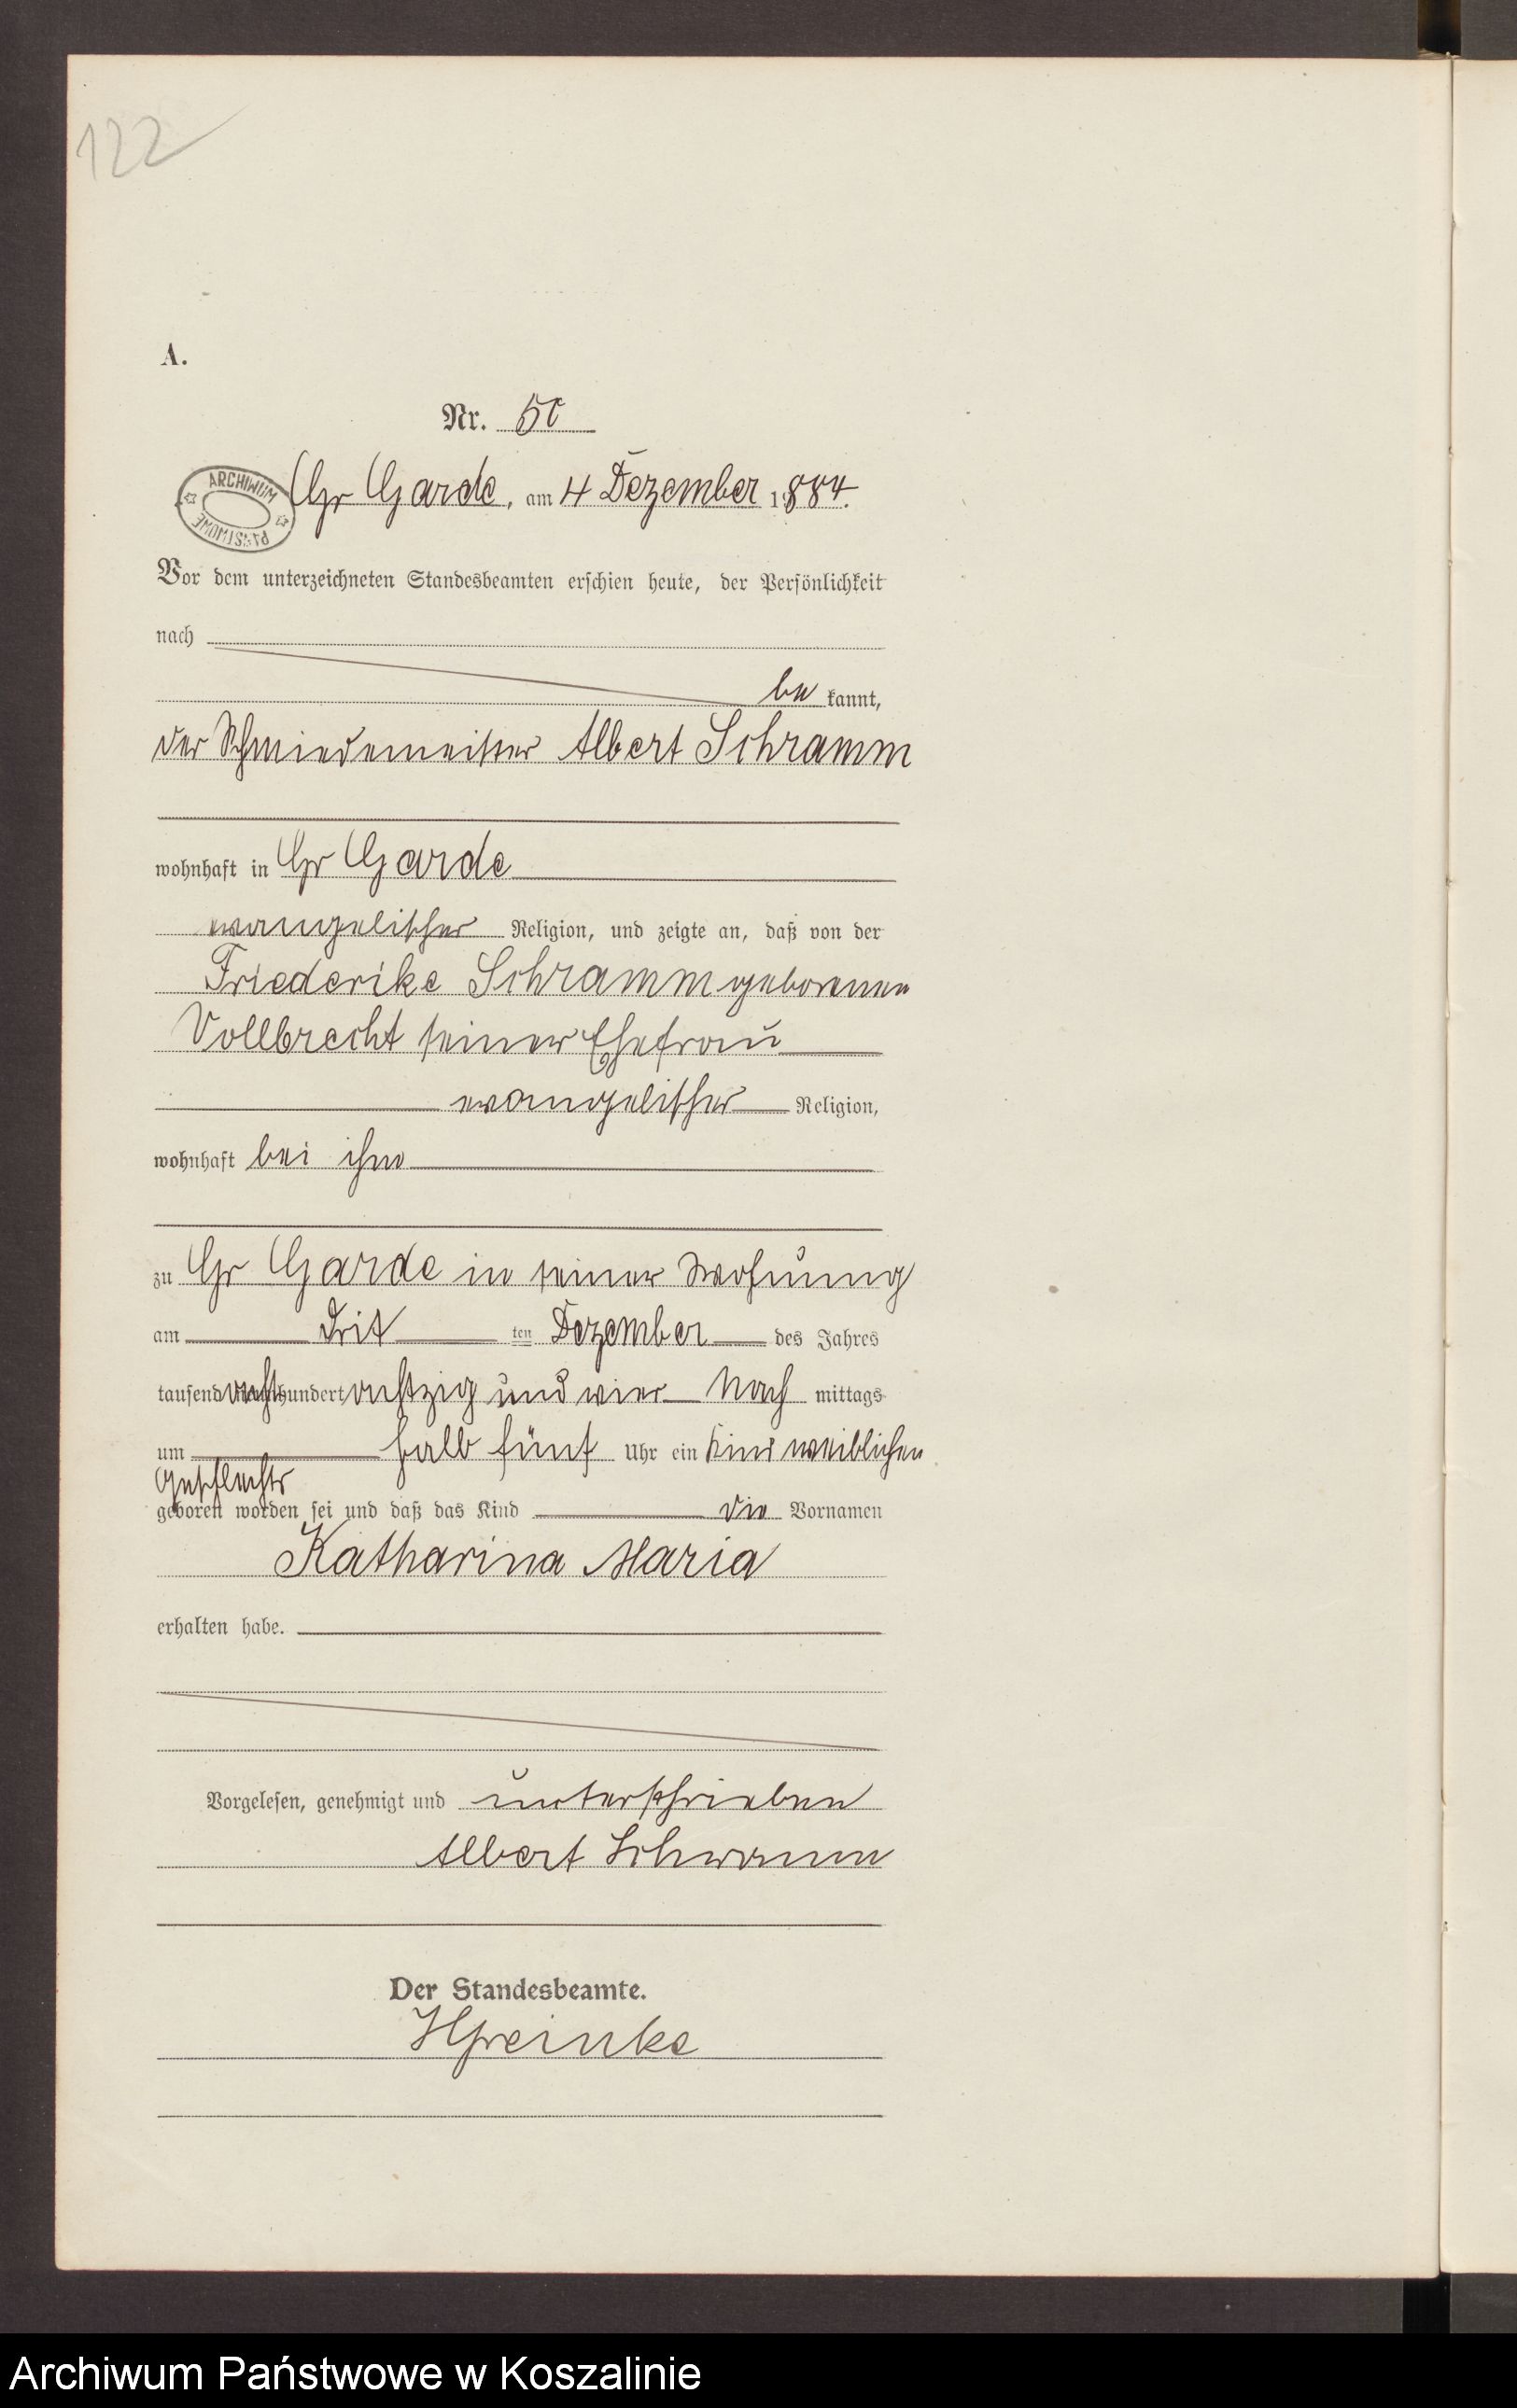 122
A.
Nr. 50
ARCHIWUM
PAŃSTWOWE
Gr Garde, am 4 Dezember 1884.
Vor dem unterzeichneten Standesbeamten erschien heute, der Persönlichkeit
nach
be kannt,
der Schmiedemeister Albert Schramm
wohnhaft in Gr Garde
evangelischer Religion, und zeigte an, daß von der
Friederike Schramm geborenen
Vollbrecht seiner Ehefrau
evangelischer Religion,
wohnhaft bei ihm
zu Gr Garde in seiner Wohnung
am Drit ten Dezember des Jahres
tausend acht hundert achtzig und vier Nach mittags
um halb fünf Uhr ein Kind weiblichen
Geschlechts
geboren worden sei und daß das Kind die Vornamen
Katharina Maria
erhalten habe.
Vorgelesen, genehmigt und unterschrieben
Albert Schramm
Der Standesbeamte.
Archiwum Państwowe w Koszalinie